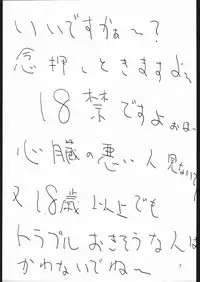 いいですかぁ〜?
念押しときますよぉ
18禁ですよぉほー
心臓の悪い人見ないで
又18歳以上でも
トラブルおきそうな人は
かわないでね〜